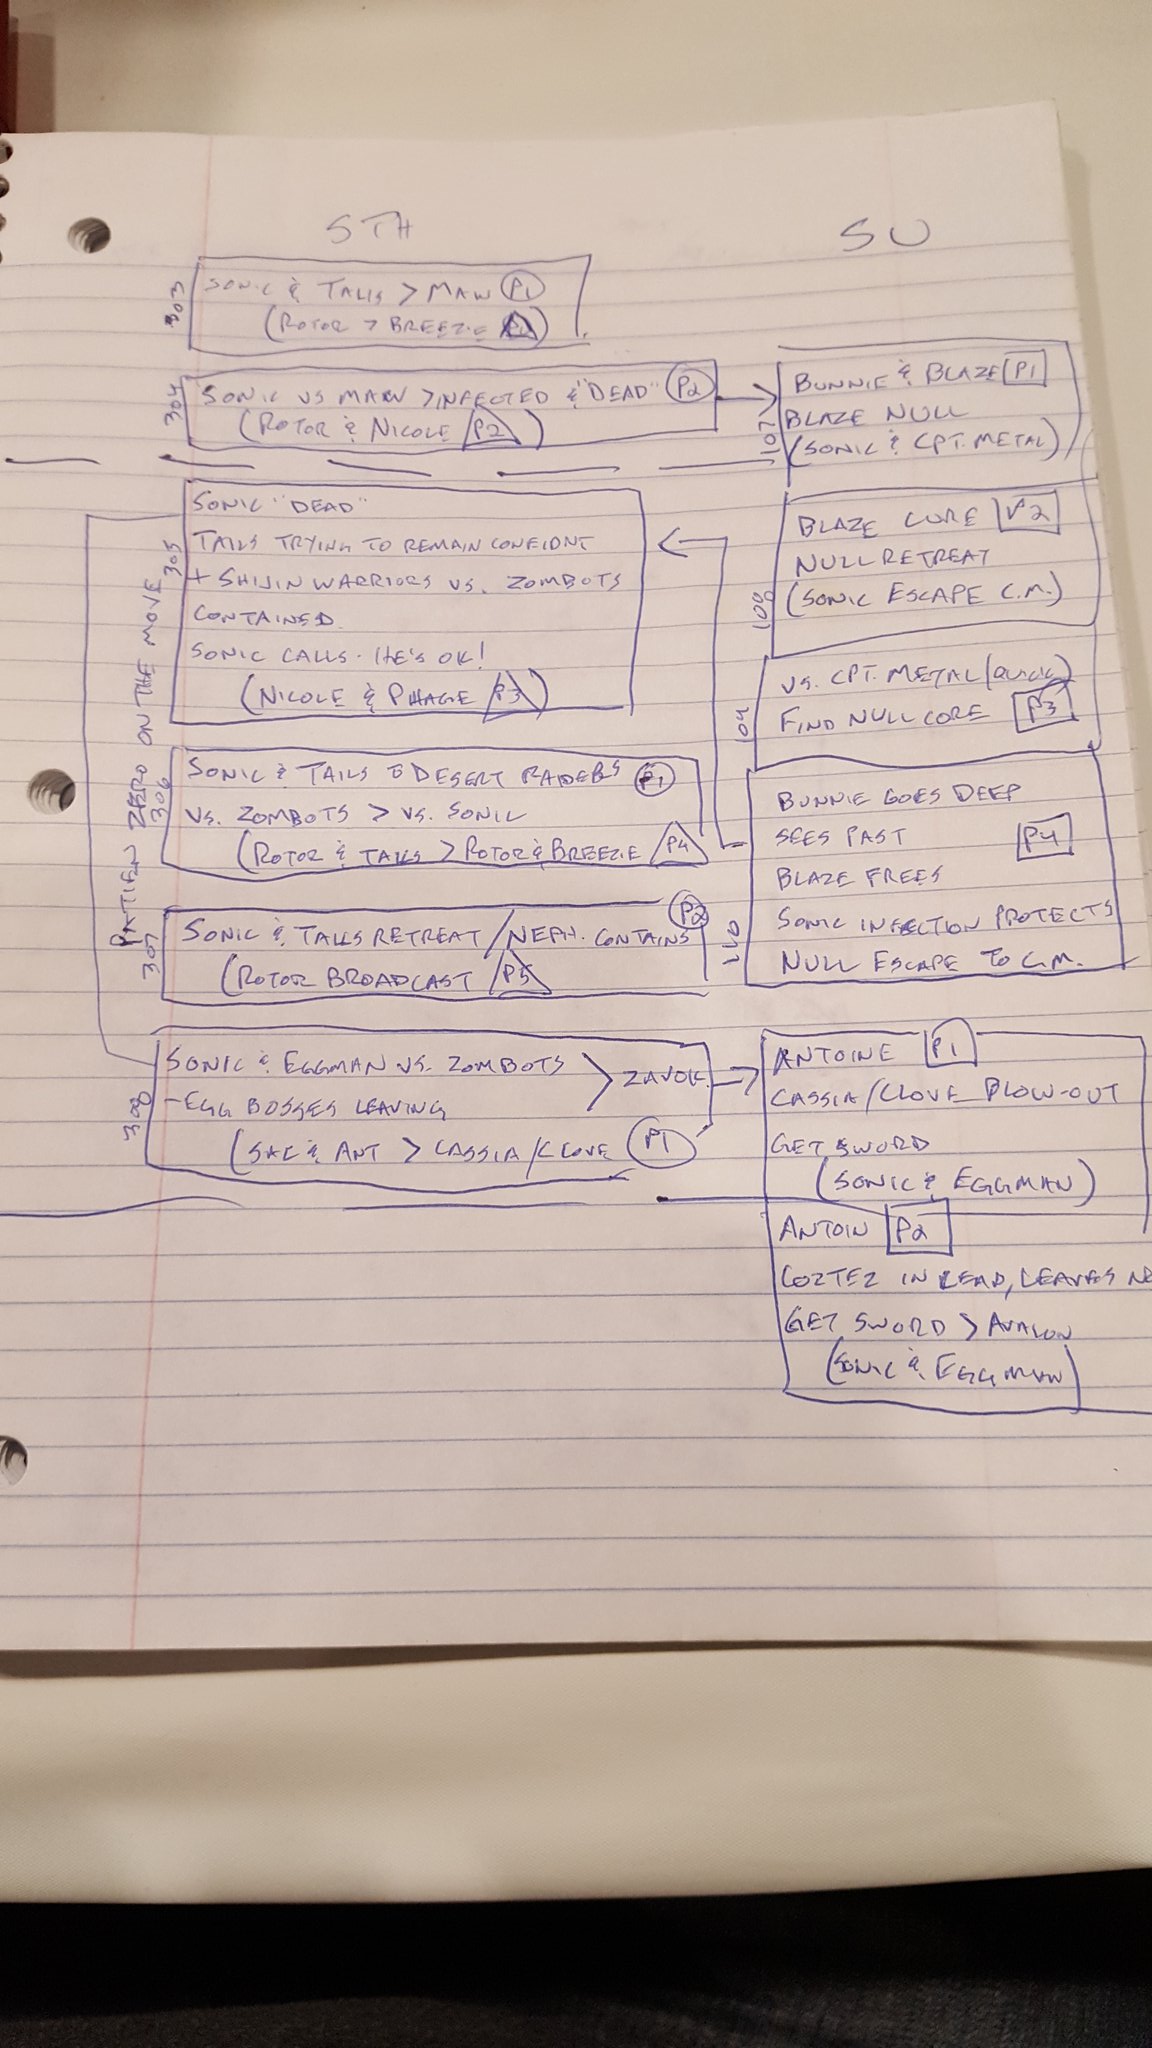 STH
303
SONIC & TAILS > MAW P1
(ROTOR > BREEZIE)
304
SONIC VS MAW > INFECTED & "DEAD" P2
(ROTOR & NICOLE P2)
PATIENT ZERO ON THE MOVE
305
SONIC "DEAD"
TAILS TRYING TO REMAIN CONFIDNT
+ SHIJIN WARRIORS VS. ZOMBOTS
CONTAINED
SONIC CALLS - HE'S OK!
(NICOLE & PHAGE P3)
306
SONIC & TAILS DESERT RAIDERS P1
VS. ZOMBOTS > VS. SONIC
(ROTOR & TAILS > ROTOR & BREEZIE P4
307
SONIC & TAILS RETREAT / NEPH. CONTAINS P2
(ROTOR BROADCAST P5
308
SONIC & EGGMAN VS. ZOMBOTS > ZAVOK
- EGG BOSSES LEAVING
(SAL & ANT > CASSIA/CLOVE P1
SU
107
BUNNIE & BLAZE P1
BLAZE NULL
(SONIC & CPT. METAL)
108
BLAZE CURE P2
NULL RETREAT
(SONIC ESCAPE C.M.)
109
VS. CPT. METAL (QUICK)
FIND NULL CORE P3
110
BUNNIE GOES DEEP
SEES PAST P4
BLAZE FREES
SONIC INFECTION PROTECTS
NULL ESCAPE TO C.M.
ANTOINE P1
CASSIA/CLOVE BLOW-OUT
GET SWORD
(SONIC & EGGMAN)
ANTOIN P2
COZTEZ IN LEAD, LEAVES
GET SWORD > AVALON
(SONIC & EGGMAN)